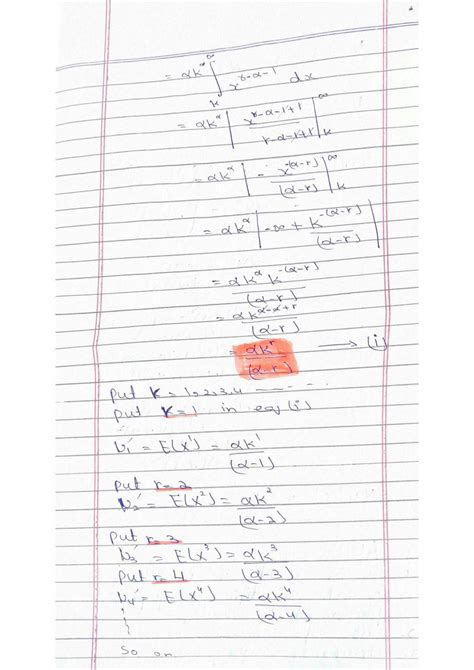 = αk^α ∫_k^∞ x^(r-α-1) dx
= αk^α | x^(r-α-1+1) / (r-α-1+1) |_k^∞
= αk^α | - x^-(α-r) / (α-r) |_k^∞
= αk^α | -∞ + k^-(α-r) / (α-r) |
= αk^α k^-(α-r) / (α-r)
= αk^(α-α+r) / (α-r)
= αk^r / (α-r) → (i)
put r = 1,2,3,4 -----
put r=1 in eq (i)
μ₁′ = E(x¹) = αk¹ / (α-1)
put r=2
μ₂′ = E(x²) = αk² / (α-2)
put r=3
μ₃′ = E(x³) = αk³ / (α-3)
put r=4
μ₄′ = E(x⁴) = αk⁴ / (α-4)
so on